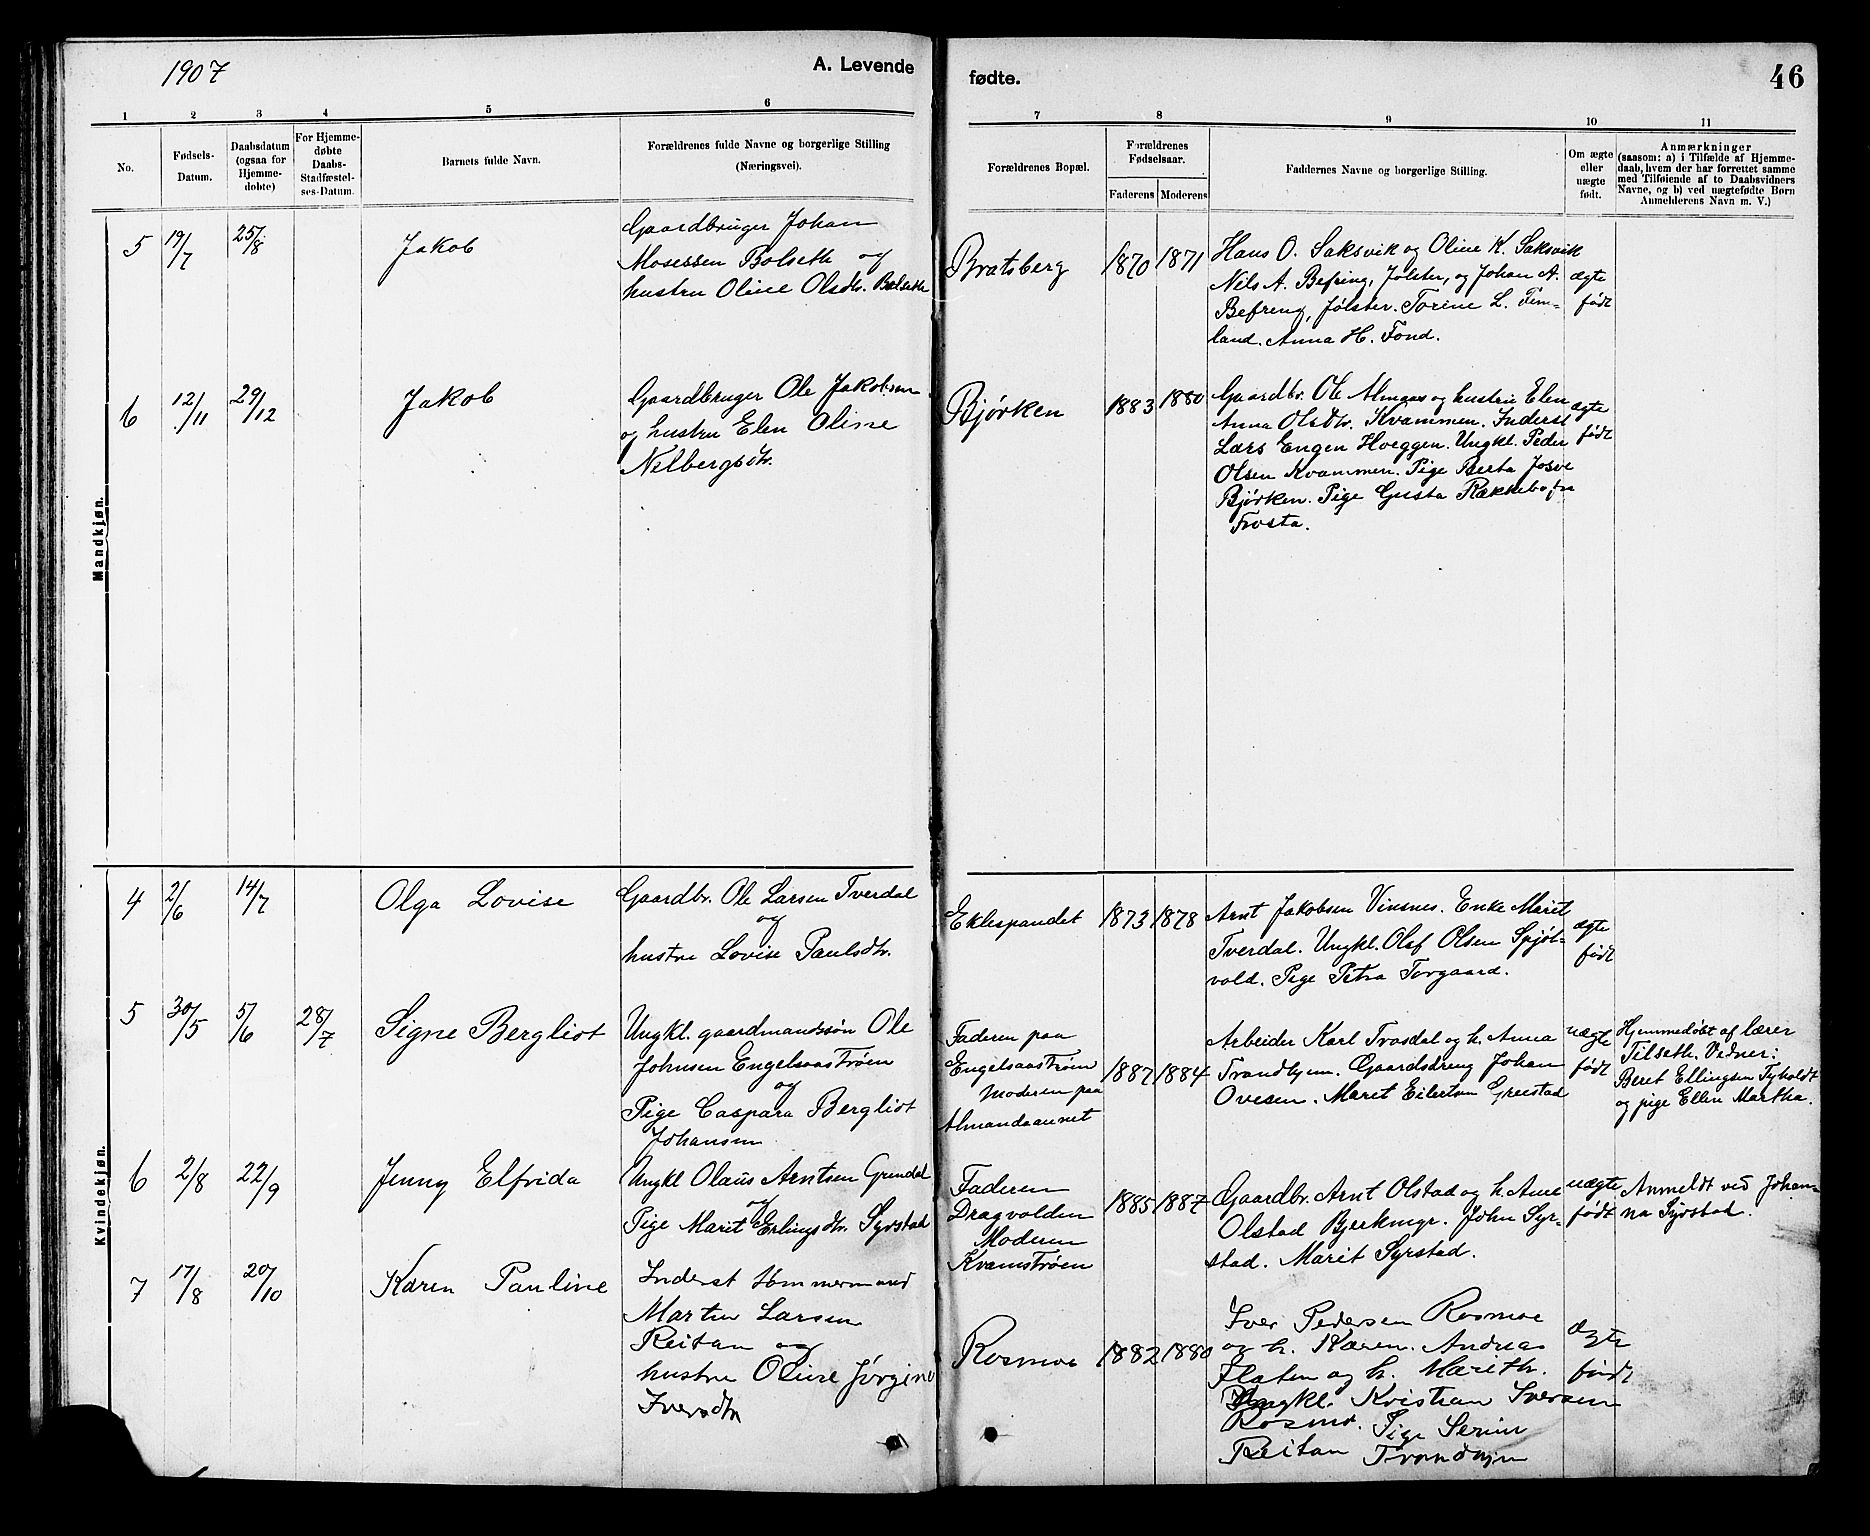 1907
A. Levende
fødte.
46
1
2
3
4
5
6
7
8
9
10
11
No.
Fødsels-
Datum.
Daabsdatum
(ogsaa for
Hjemme-
døbte)
For Hjemme-
døbte
Daabs-
Stadfæstel-
ses-Datum.
Barnets fulde Navn.
Forældrenes fulde Navne og borgerlige Stilling
(Næringsvei).
Forældrenes Bopæl.
Forældrenes
Fødselsaar.
Faderens
Moderens
Faddernes Navne og borgerlige Stilling.
Om ægte
eller
uægte
født.
Anmærkninger
(saasom: a) i Tilfælde af Hjemme-
daab, hvem der har forrettet samme
med Tilføiende af to Daabsvidners
Navne, og b) ved uægtefødte Børn
Anmelderens Navn m. V.)
Mandkjøn.
5
19/7
25/8
Jakob
Gaardbruger Johan
Mosessen Bolseth og
hustru Oline Olsdtr. Bolseth
Bratsberg
1870
1871
Hans O. Saksvik og Oline K. Saksvik
Nils A. Befring, Jølster, og Johan A.
Befring, Jølster. Torine L. Fem-
land. Anna H. Fond.
ægte
født
6
12/11
29/12
Jakob
Gaardbruger Ole Jakobsen
og hustru Elen Oline
Nelbergsdtr.
Bjørken
1883
1880
Gaardbr. Ole Almaas og hustru Elen
Anna Olsdtr. Kvammen. Inderst
Lars Engen Hoeggen. Ungkl. Peder
Olsen Kvammen. Pige Berta Josve
Bjørken. Pige Gusta
Frosta.
ægte
født
Kvindekjøn.
4
2/6
14/7
Olga Lovise
Gaardbr. Ole Larsen Tverdal
og
hustru Lovise Paulsdtr.
Eklespandet
1873
1878
Arnt Jakobsen Vinsnes. Enke Marit
Tverdal. Ungkl. Olaf Olsen Spjøt-
vold. Pige Petra Torgaard.
ægte
født
5
30/5
5/6
28/7
Signe Bergliot
Ungkl. gaardmandssøn Ole
Johnsen Engelsaastrøen
og
Pige Caspara Bergliot
Johansen
Faderen paa
Engelsaastrøen
Moderen paa
Almandaaunet
1887
1884
Arbeider Karl Trosdal og h. Anna
Trondhjem. Gaardsdreng Johan
Ovesen. Marit Eilertsen Greestad
uægte
født
Hjemmedøbt af lærer
Tilseth. Vidner:
Beret Ellingsen Tyholdt
og pige Ellen Martha.
6
2/8
22/9
Jenny Elfrida
Ungkl Olaus Arntsen Grendal
og
Pige Marit Erlingsdtr. Syrstad
Faderen
Dragvolden
Moderen
Kvamstrøen
1885
1887
Gaardbr. Arnt Olstad og h. Ane
Olstad Bjerkmyr. John Syr-
stad. Marit Syrstad.
uægte
født
Anmeldt ved Johan-
na Syrstad.
7
17/8
20/10
Karen Pauline
Inderst tømmermand
Martin Larsen
Reitan og
hustru Oline Jørgine
Iversdtr
Rosmoe
1882
1880
Iver Pedersen Rosmoe
og h. Karen. Andreas
Flaten og h. Marith.
Ungkl. Kristian Iversen
Rosmo. Pige Serine
Reitan Trondhjem
ægte
født